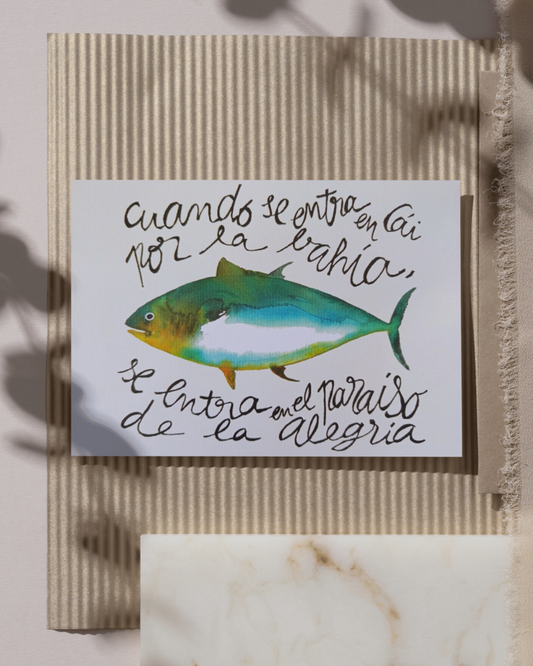 cuando se entra en Cái
por la bahía,
se entra en el paraíso
de la alegría